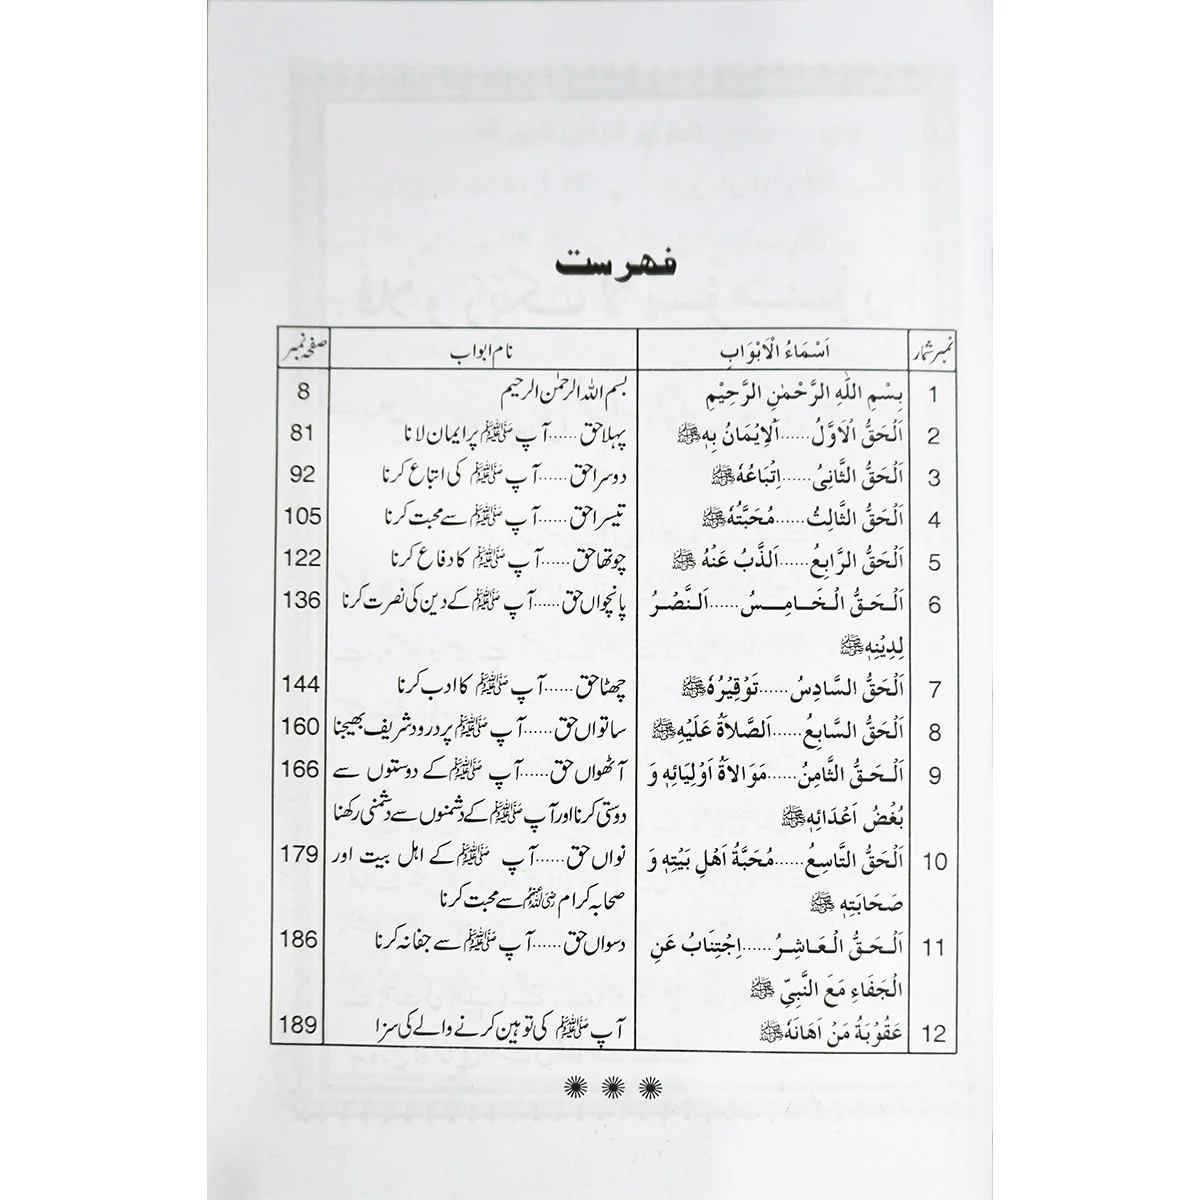 فهرست
نمبر شمار اَسْمَاءُ الْاَبْوَابِ نام ابواب صفحہ نمبر
1 بِسْمِ اللّٰهِ الرَّحْمٰنِ الرَّحِيْمِ بسم اللہ الرحمٰن الرحیم 8
2 اَلْحَقُّ الْاَوَّلُ......اَلْاِيْمَانُ بِهٖ ﷺ پہلا حق......آپ ﷺ پر ایمان لانا 81
3 اَلْحَقُّ الثَّانِىُ......اِتِّبَاعُهٗ ﷺ دوسرا حق......آپ ﷺ کی اتباع کرنا 92
4 اَلْحَقُّ الثَّالِثُ......مُحَبَّتُهٗ ﷺ تیسرا حق......آپ ﷺ سے محبت کرنا 105
5 اَلْحَقُّ الرَّابِعُ......اَلذَّبُ عَنْهُ ﷺ چوتھا حق......آپ ﷺ کا دفاع کرنا 122
6 اَلْحَقُّ الْخَامِسُ......اَلنَّصْرُ پانچواں حق......آپ ﷺ کے دین کی نصرت کرنا 136
لِدِيْنِهٖ ﷺ
7 اَلْحَقُّ السَّادِسُ......تَوْقِيْرُهٗ ﷺ چھٹا حق......آپ ﷺ کا ادب کرنا 144
8 اَلْحَقُّ السَّابِعُ......اَلصَّلَاةُ عَلَيْهِ ﷺ ساتواں حق......آپ ﷺ پر درود شریف بھیجنا 160
9 اَلْحَقُّ الثَّامِنُ......مَوَالَاةُ اَوْلِيَائِهٖ وَ آٹھواں حق......آپ ﷺ کے دوستوں سے 166
بُغْضُ اَعْدَائِهٖ ﷺ دوستی کرنا اور آپ ﷺ کے دشمنوں سے دشمنی رکھنا
10 اَلْحَقُّ التَّاسِعُ......مُحَبَّةُ اَهْلِ بَيْتِهٖ وَ نواں حق......آپ ﷺ کے اہل بیت اور 179
صَحَابَتِهٖ ﷺ صحابہ کرام رضی اللہ عنہم سے محبت کرنا
11 اَلْحَقُّ الْعَاشِرُ......اِجْتِنَابُ عَنِ دسواں حق......آپ ﷺ سے جفا نہ کرنا 186
الْجَفَاءِ مَعَ النَّبِيِّ ﷺ
12 عَقُوْبَةُ مَنْ اَهَانَهٗ ﷺ آپ ﷺ کی توہین کرنے والے کی سزا 189